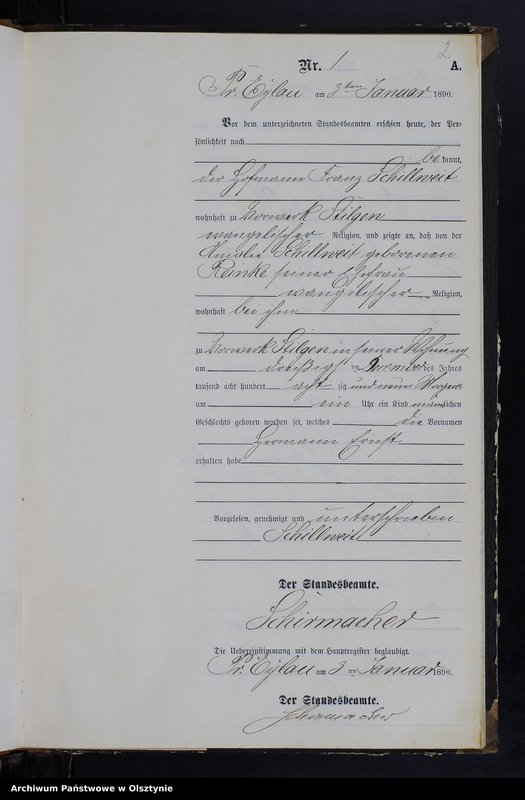 2
Nr. 1 A.
Pr. Eylau am 3ten Januar 1890.
Vor dem unterzeichneten Standesbeamten erschien heute, der Per-
sönlichkeit nach
be kannt,
der Hofmann Franz Schillweit
wohnhaft zu Vorwerk Stilgen
evangelischer Religion, und zeigte an, daß von der
Amalie Schillweit geborenen
Reinke seiner Ehefrau
evangelischer Religion,
wohnhaft bei ihm
zu Vorwerk Stilgen in seiner Wohnung
am dreißigsten Dezember des Jahres
tausend acht hundert acht zig und neun Morgens
um ein Uhr ein Kind männlichen
Geschlechts geboren worden sei, welches die Vornamen
Hermann Ernst
erhalten habe
Vorgelesen, genehmigt und unterschrieben
Schillweit
Der Standesbeamte.
Schirmacher
Die Uebereinstimmung mit dem Hauptregister beglaubigt.
Pr. Eylau am 3 ten Januar 1890.
Der Standesbeamte.
Schirmacher
Archiwum Państwowe w Olsztynie